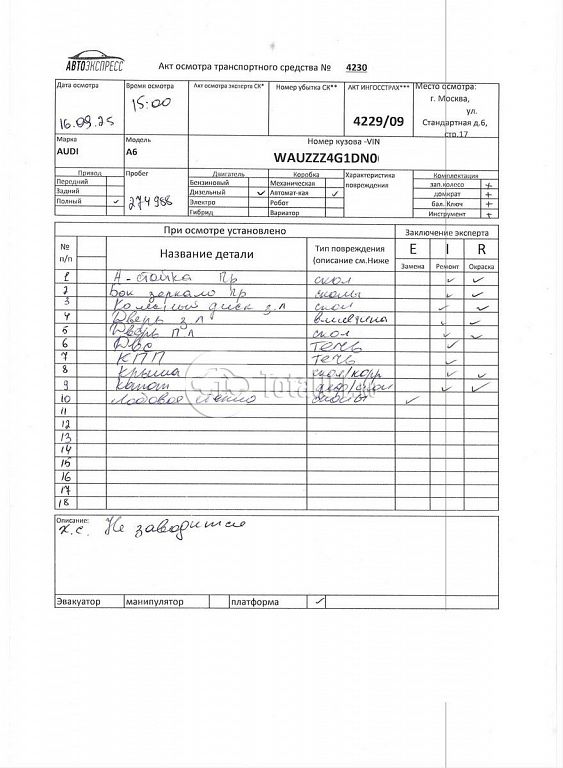 АВТОЭКСПРЕСС
Акт осмотра транспортного средства № 4230
Дата осмотра Время осмотра Акт осмотра эксперта СК* Номер убытка СК** АКТ ИНГОССТРАХ*** Место осмотра:
16.09.25 15:00 4229/09 г. Москва, ул. Стандартная д.6, стр.17
Марка Модель Номер кузова -VIN
AUDI A6 WAUZZZ4G1DN0
Привод Пробег Двигатель Коробка Характеристика повреждения Комплектация
Передний Бензиновый Механическая зап.колесо +
Задний 274988 Дизельный ✓ Автомат-кая ✓ домкрат +
Полный ✓ Электро Робот бал. Ключ +
Гибрид Вариатор Инструмент +
При осмотре установлено Заключение эксперта
№ п/п Название детали Тип повреждения (описание см.Ниже E I R
Замена Ремонт Окраска
1 А-стойка Пр скол ✓ ✓
2 Бок зеркало пр сколы ✓ ✓
3 Колёсный диск з л скол ✓ ✓
4 Дверь з л вмятина ✓ ✓
5 Дверь п л скол ✓ ✓
6 ДВС течь ✓
7 КПП течь ✓
8 Крыша скол/корр ✓ ✓
9 капот деф/скол ✓ ✓
10 Лобовое стекло сколы ✓
11
12
13
14
15
16
17
18
Описание:
х.с. Не заводится
Эвакуатор манипулятор платформа ✓